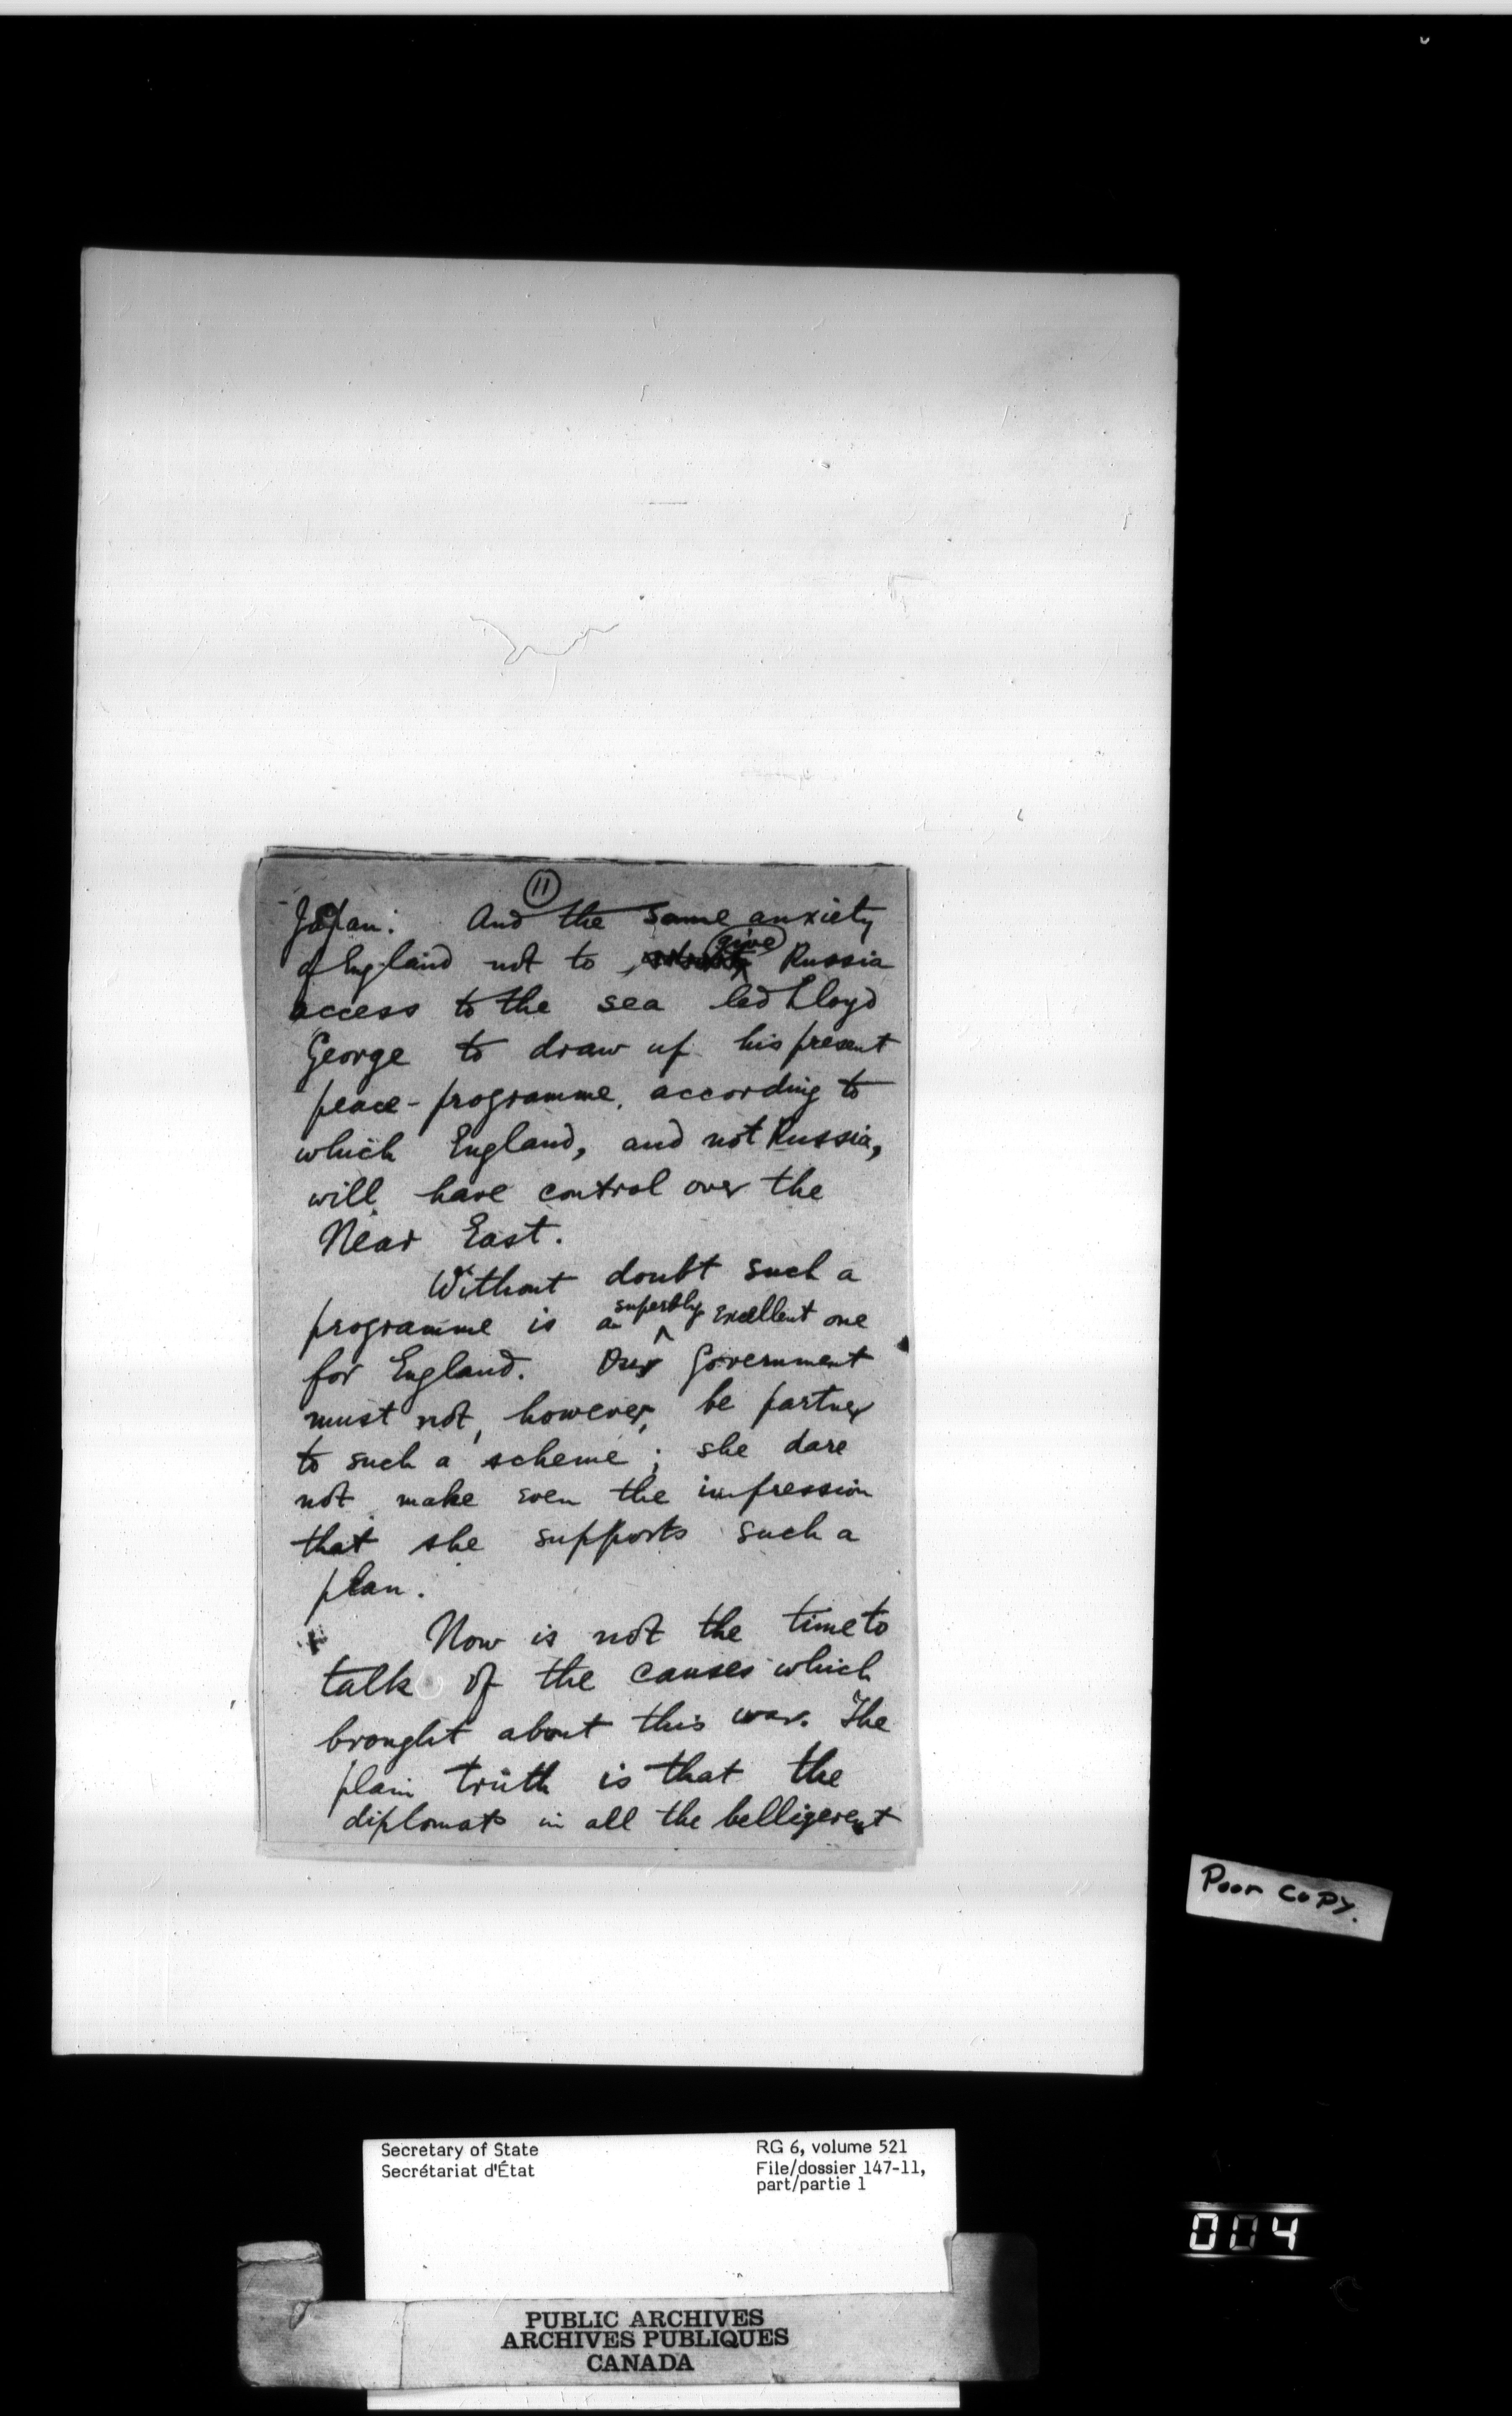 11
Japan. And the same anxiety
of England not to give Russia
access to the sea led Lloyd
George to draw up his present
peace-programme, according to
which England, and not Russia,
will have control over the
Near East.
Without doubt such a
programme is an superbly excellent one
for England. Our Government
must not, however, be partner
to such a scheme; she dare
not make even the impression
that she supports such a
plan.
Now is not the time to
talk of the causes which
brought about this war. The
plain truth is that the
diplomats in all the belligerent
Poor copy.
Secretary of State
Secrétariat d'État
RG 6, volume 521
File/dossier 147-11,
part/partie 1
004
PUBLIC ARCHIVES
ARCHIVES PUBLIQUES
CANADA